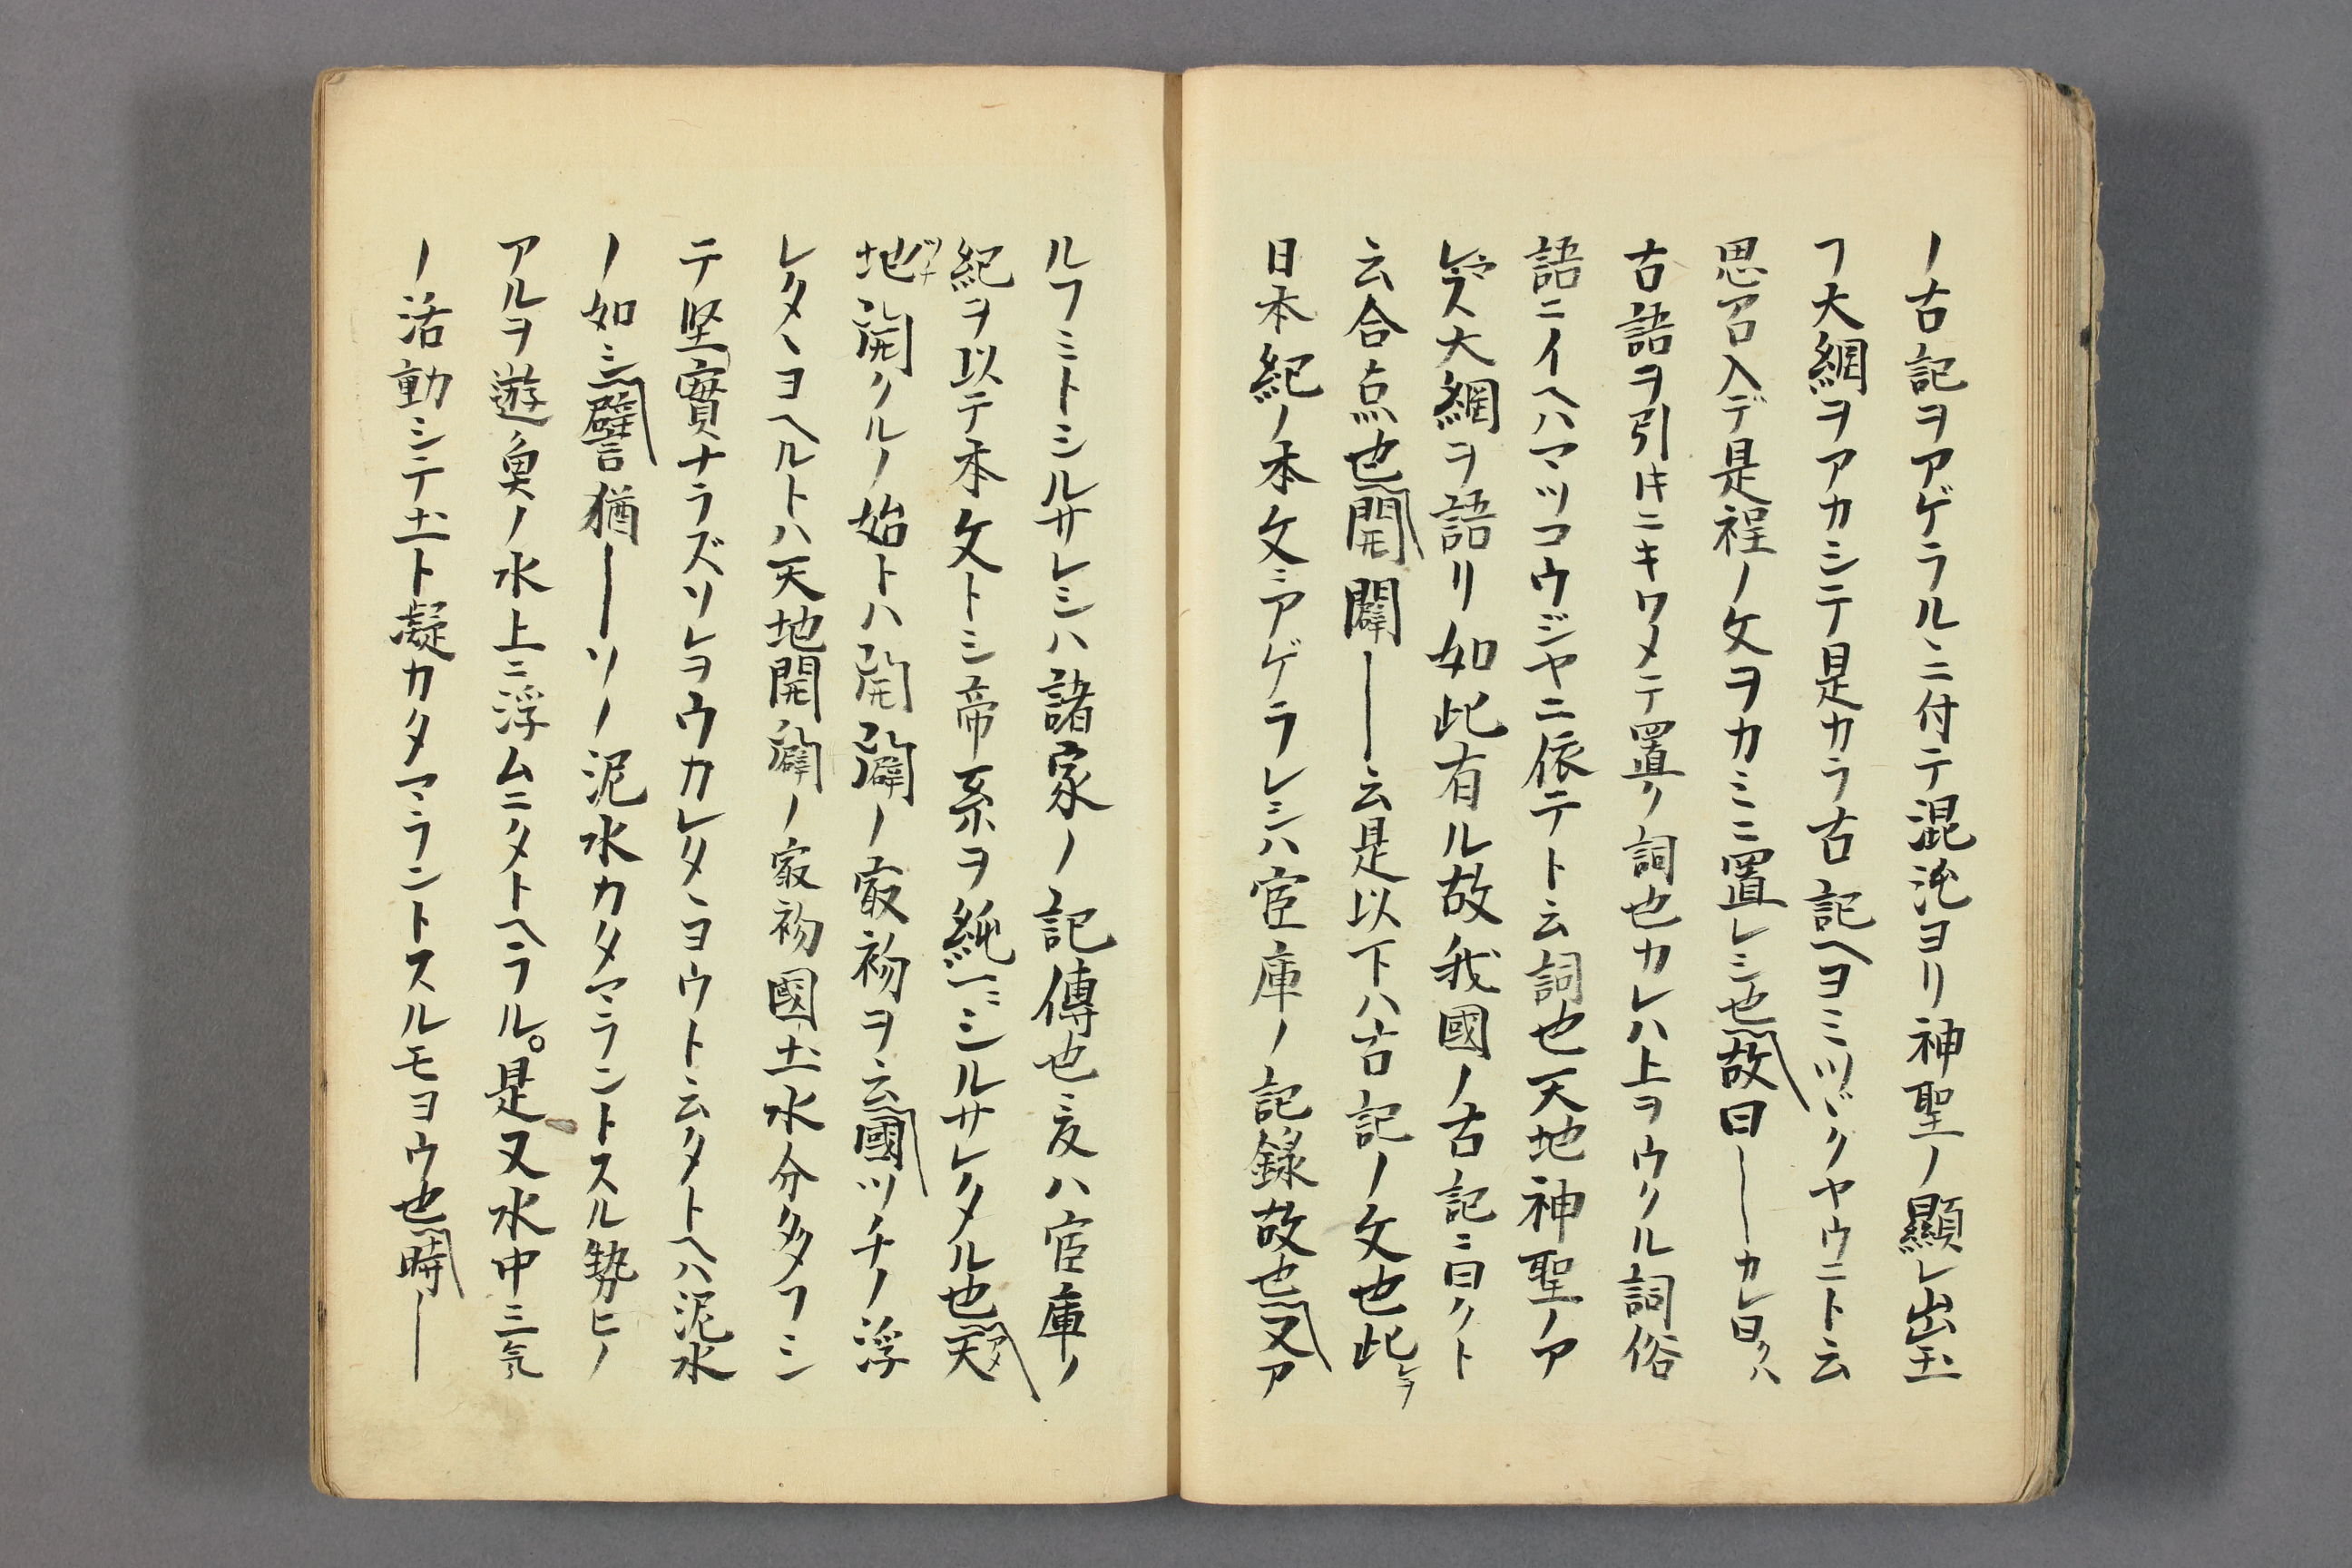 ノ古記ヲアゲラルヽニ付テ混沌ヨリ神聖ノ顯レ出玉
フ大綱ヲアカシテ是カラ古記ヘヨミツヾクヤウニト云
思召入デ是程ノ文ヲカミニ置レシ也故曰―カレ曰クハ
古語ヲ引トキニキワメテ置ク詞也カレハ上ヲウクル詞俗
語ニイヘハマツコウジヤニ依テト云詞也天地神聖ノア
レマス大綱ヲ語リ如此有ル故我國ノ古記ニ曰クト
云合点也開闢―云是以下ハ古記ノ文也此レヲ
日本紀ノ本文ニアゲラレシハ官庫ノ記録故也又ア
ルフミトシルサレシハ諸家ノ記傳也爰ハ官庫ノ
紀ヲ以テ本文トシ帝系ヲ純一ニシルサレタル也天アメ
地ツチ開クルノ始トハ開闢ノ最初ヲ云國ツチノ浮
レタヽヨヘルトハ天地開闢ノ最初國土水分タフシ
テ堅實ナラズソレヲウカレタヽヨウト云タトヘハ泥水
ノ如シ譬猶―ソノ泥水カタマラントスル勢ヒノ
アルヲ遊魚ノ水上ニ浮ムニタトヘラル。是又水中ニ気
ノ活動シテ土ト凝カタマラントスルモヨウ也時―